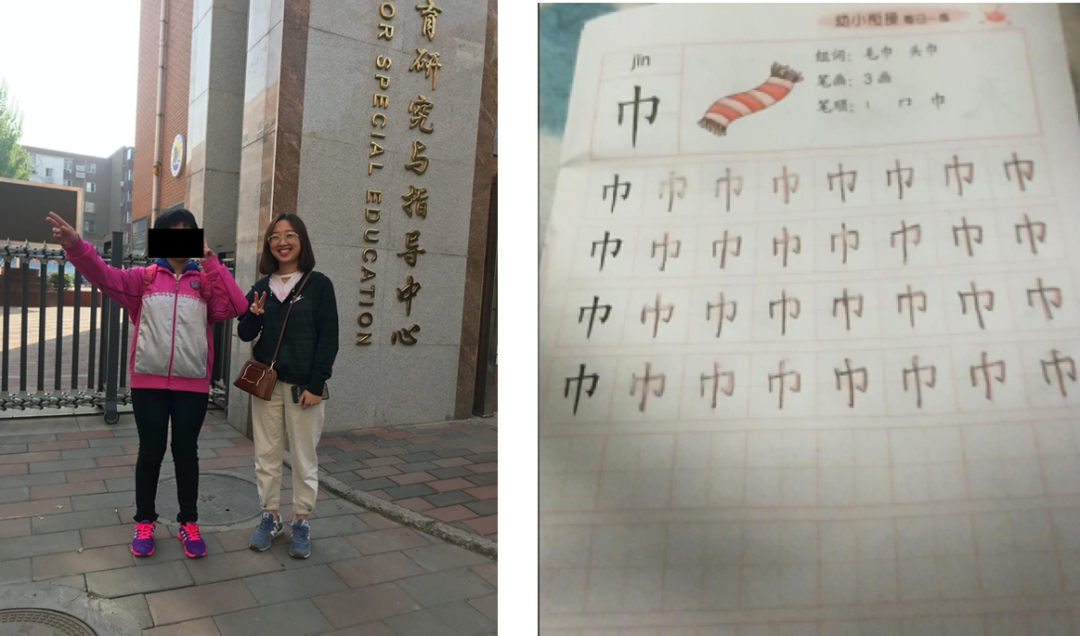 育研究与指导中心
OR SPECIAL EDUCATION
幼小衔接 每日一练
jīn
巾
组词: 毛巾 头巾
笔画: 3画
笔顺: 丨 冂 巾
巾 巾 巾 巾 巾 巾 巾 巾
巾 巾 巾 巾 巾 巾 巾 巾
巾 巾 巾 巾 巾 巾 巾 巾
巾 巾 巾 巾 巾 巾 巾 巾